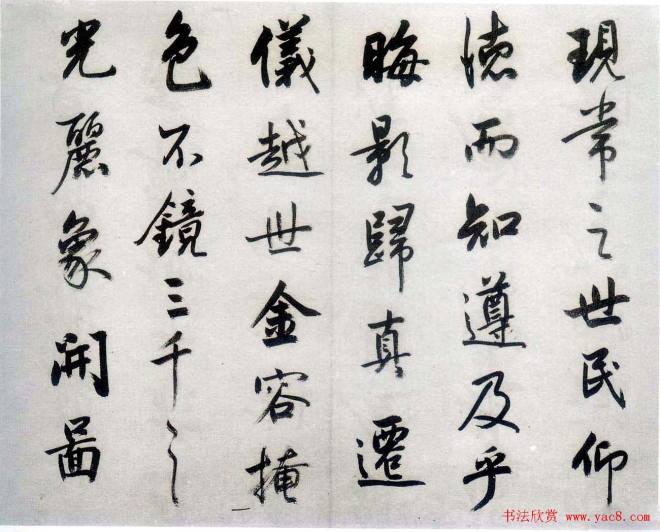 現常之世民仰
徳而知遵及乎
晦影歸真遷
儀越世金容掩
色不鏡三千之
光麗象開圖
书法欣赏 www.yac8.com